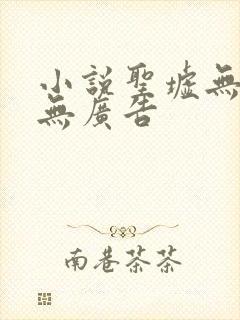 小說聖墟無
無廣告
南巷茶茶